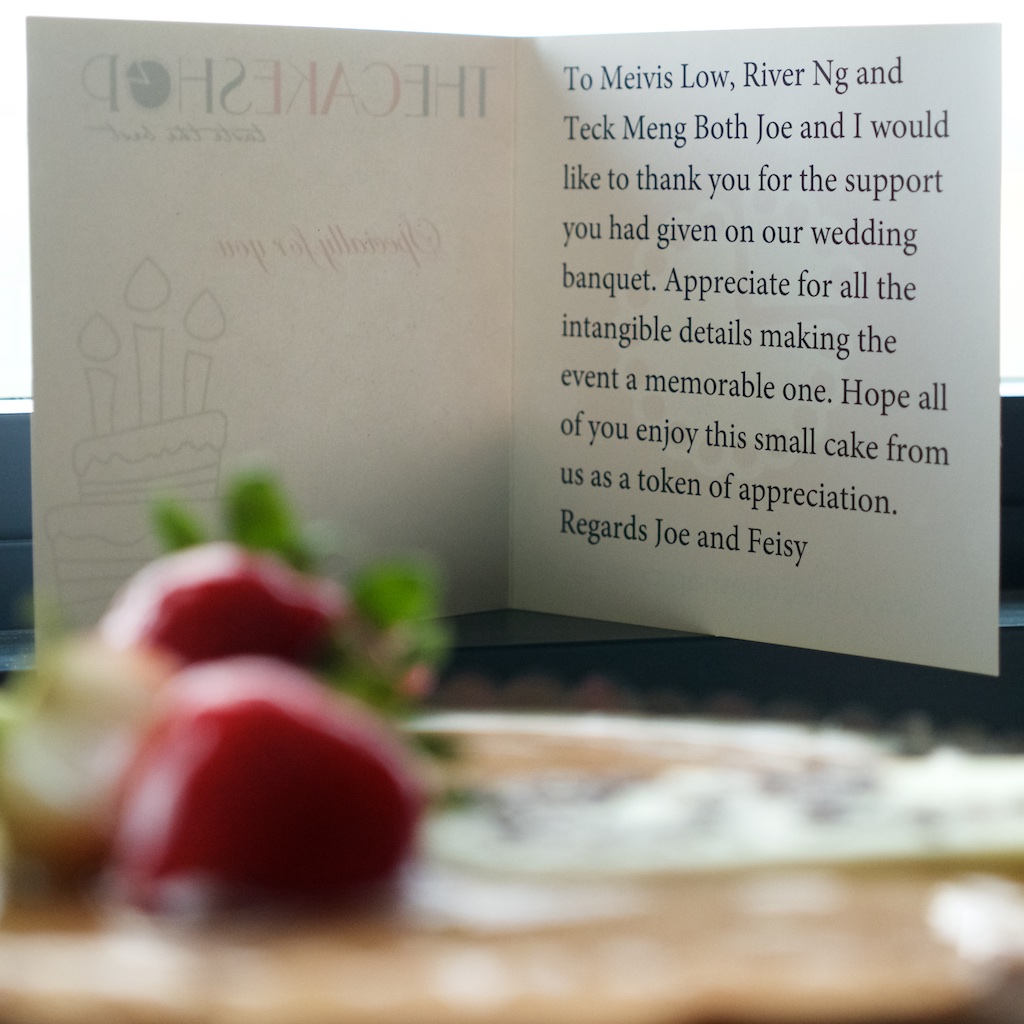 THECAKESHOP
taste the best
Specially for you
To Meivis Low, River Ng and
Teck Meng Both Joe and I would
like to thank you for the support
you had given on our wedding
banquet. Appreciate for all the
intangible details making the
event a memorable one. Hope all
of you enjoy this small cake from
us as a token of appreciation.
Regards Joe and Feisy